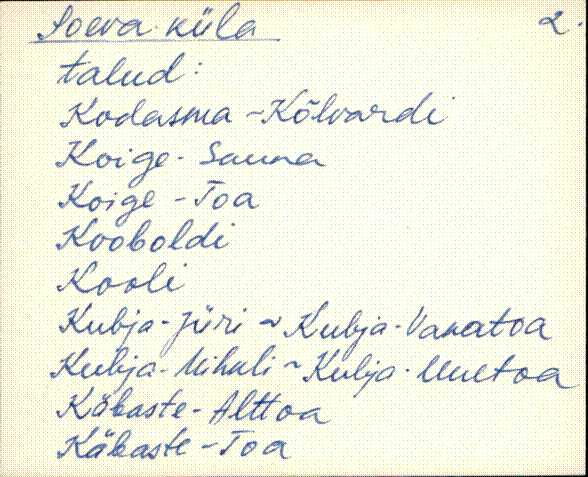 Soeva küla 2.
talud:
Kodasma ~ Kõlvardi
Koige-Sauna
Koige-Toa
Kooboldi
Kooli
Kubja-Jüri ~ Kubja-Vanatoa
Kubja-Mihkli ~ Kubja-Uuetoa
Käbaste-Alttoa
Käbaste-Toa